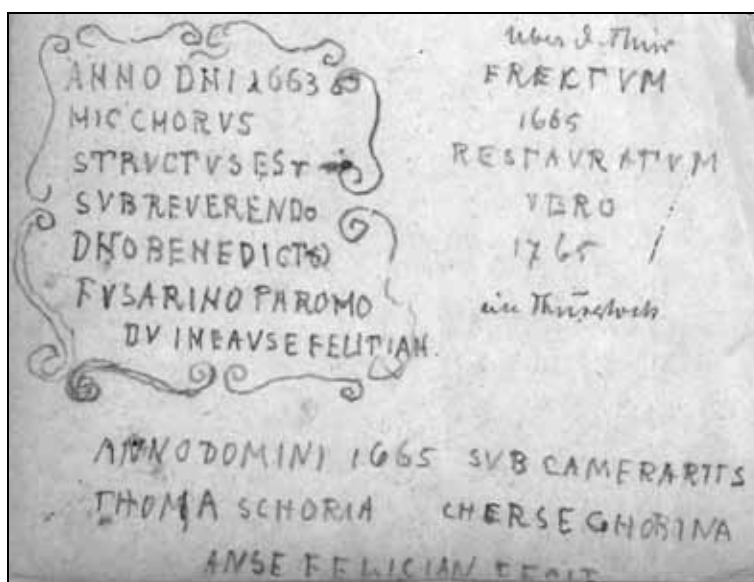 ANNO DNI 1663
HIC CHORVS
STRVCTVS EST
SVB REVERENDO
DNO BENEDICTO
FVSARINO PAROMO
DV IM EAVSE FELITIAN.
über d. Thür
EREKTVM
1665
RESTAVRATVM
VERO
1765
ein Thürstock
ANNO DOMINI 1665 SVB CAMERARIIS
THOMA SCHORIA CHERSE GHOBINA
ANSE FELICIAN FECIT